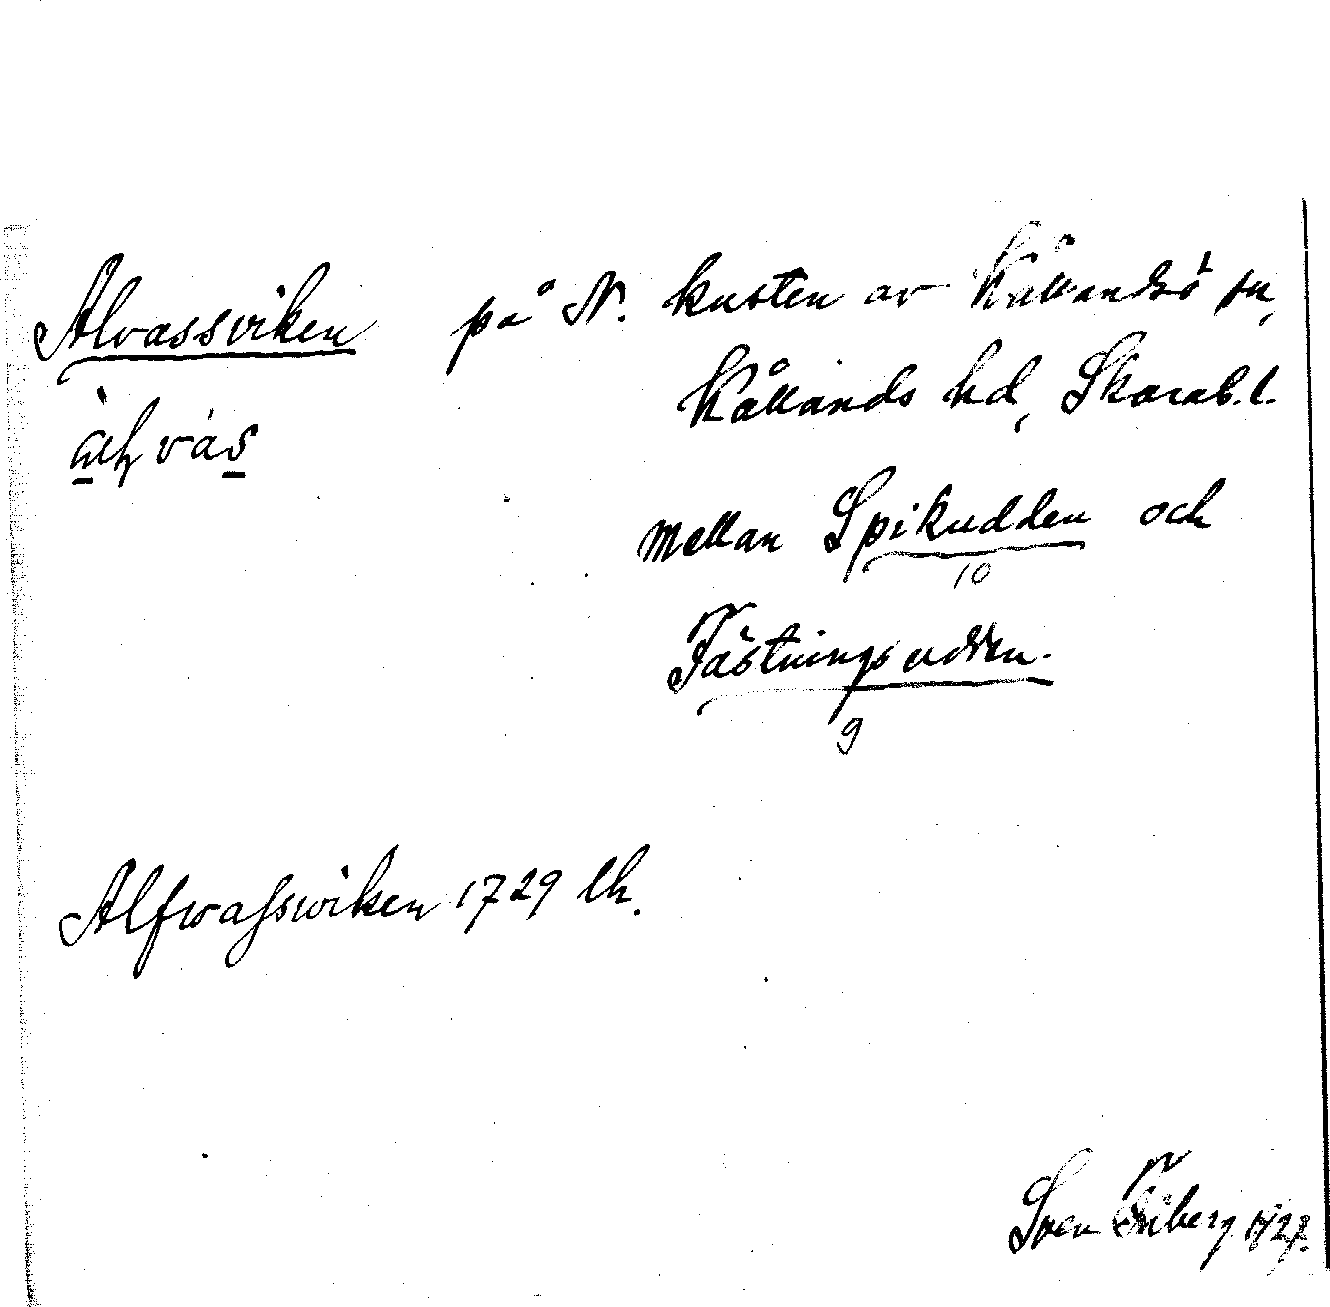 Alvassviken på N. kusten av Kållandsö sn,
Kållands hd, Skarab. l.
mellan Spikudden och
10
Fästningsudden.
9
Alfwasswiken 1729 lh.
Sven Friberg 1927.